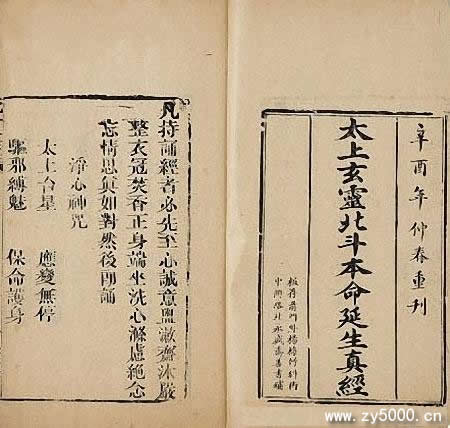 辛酉年仲春重刊
太上玄靈北斗本命延生真經
板存前門外楊梅竹斜街
中間路北永盛齋善書鋪
凡持誦經者必先至心誠意盥漱齋沐嚴
整衣冠焚香正身端坐洗心滌慮絕念
忘情思真如對然後誦
淨心神咒
太上台星　應變無停
驅邪縛魅　保命護身
www.zy5000.cn